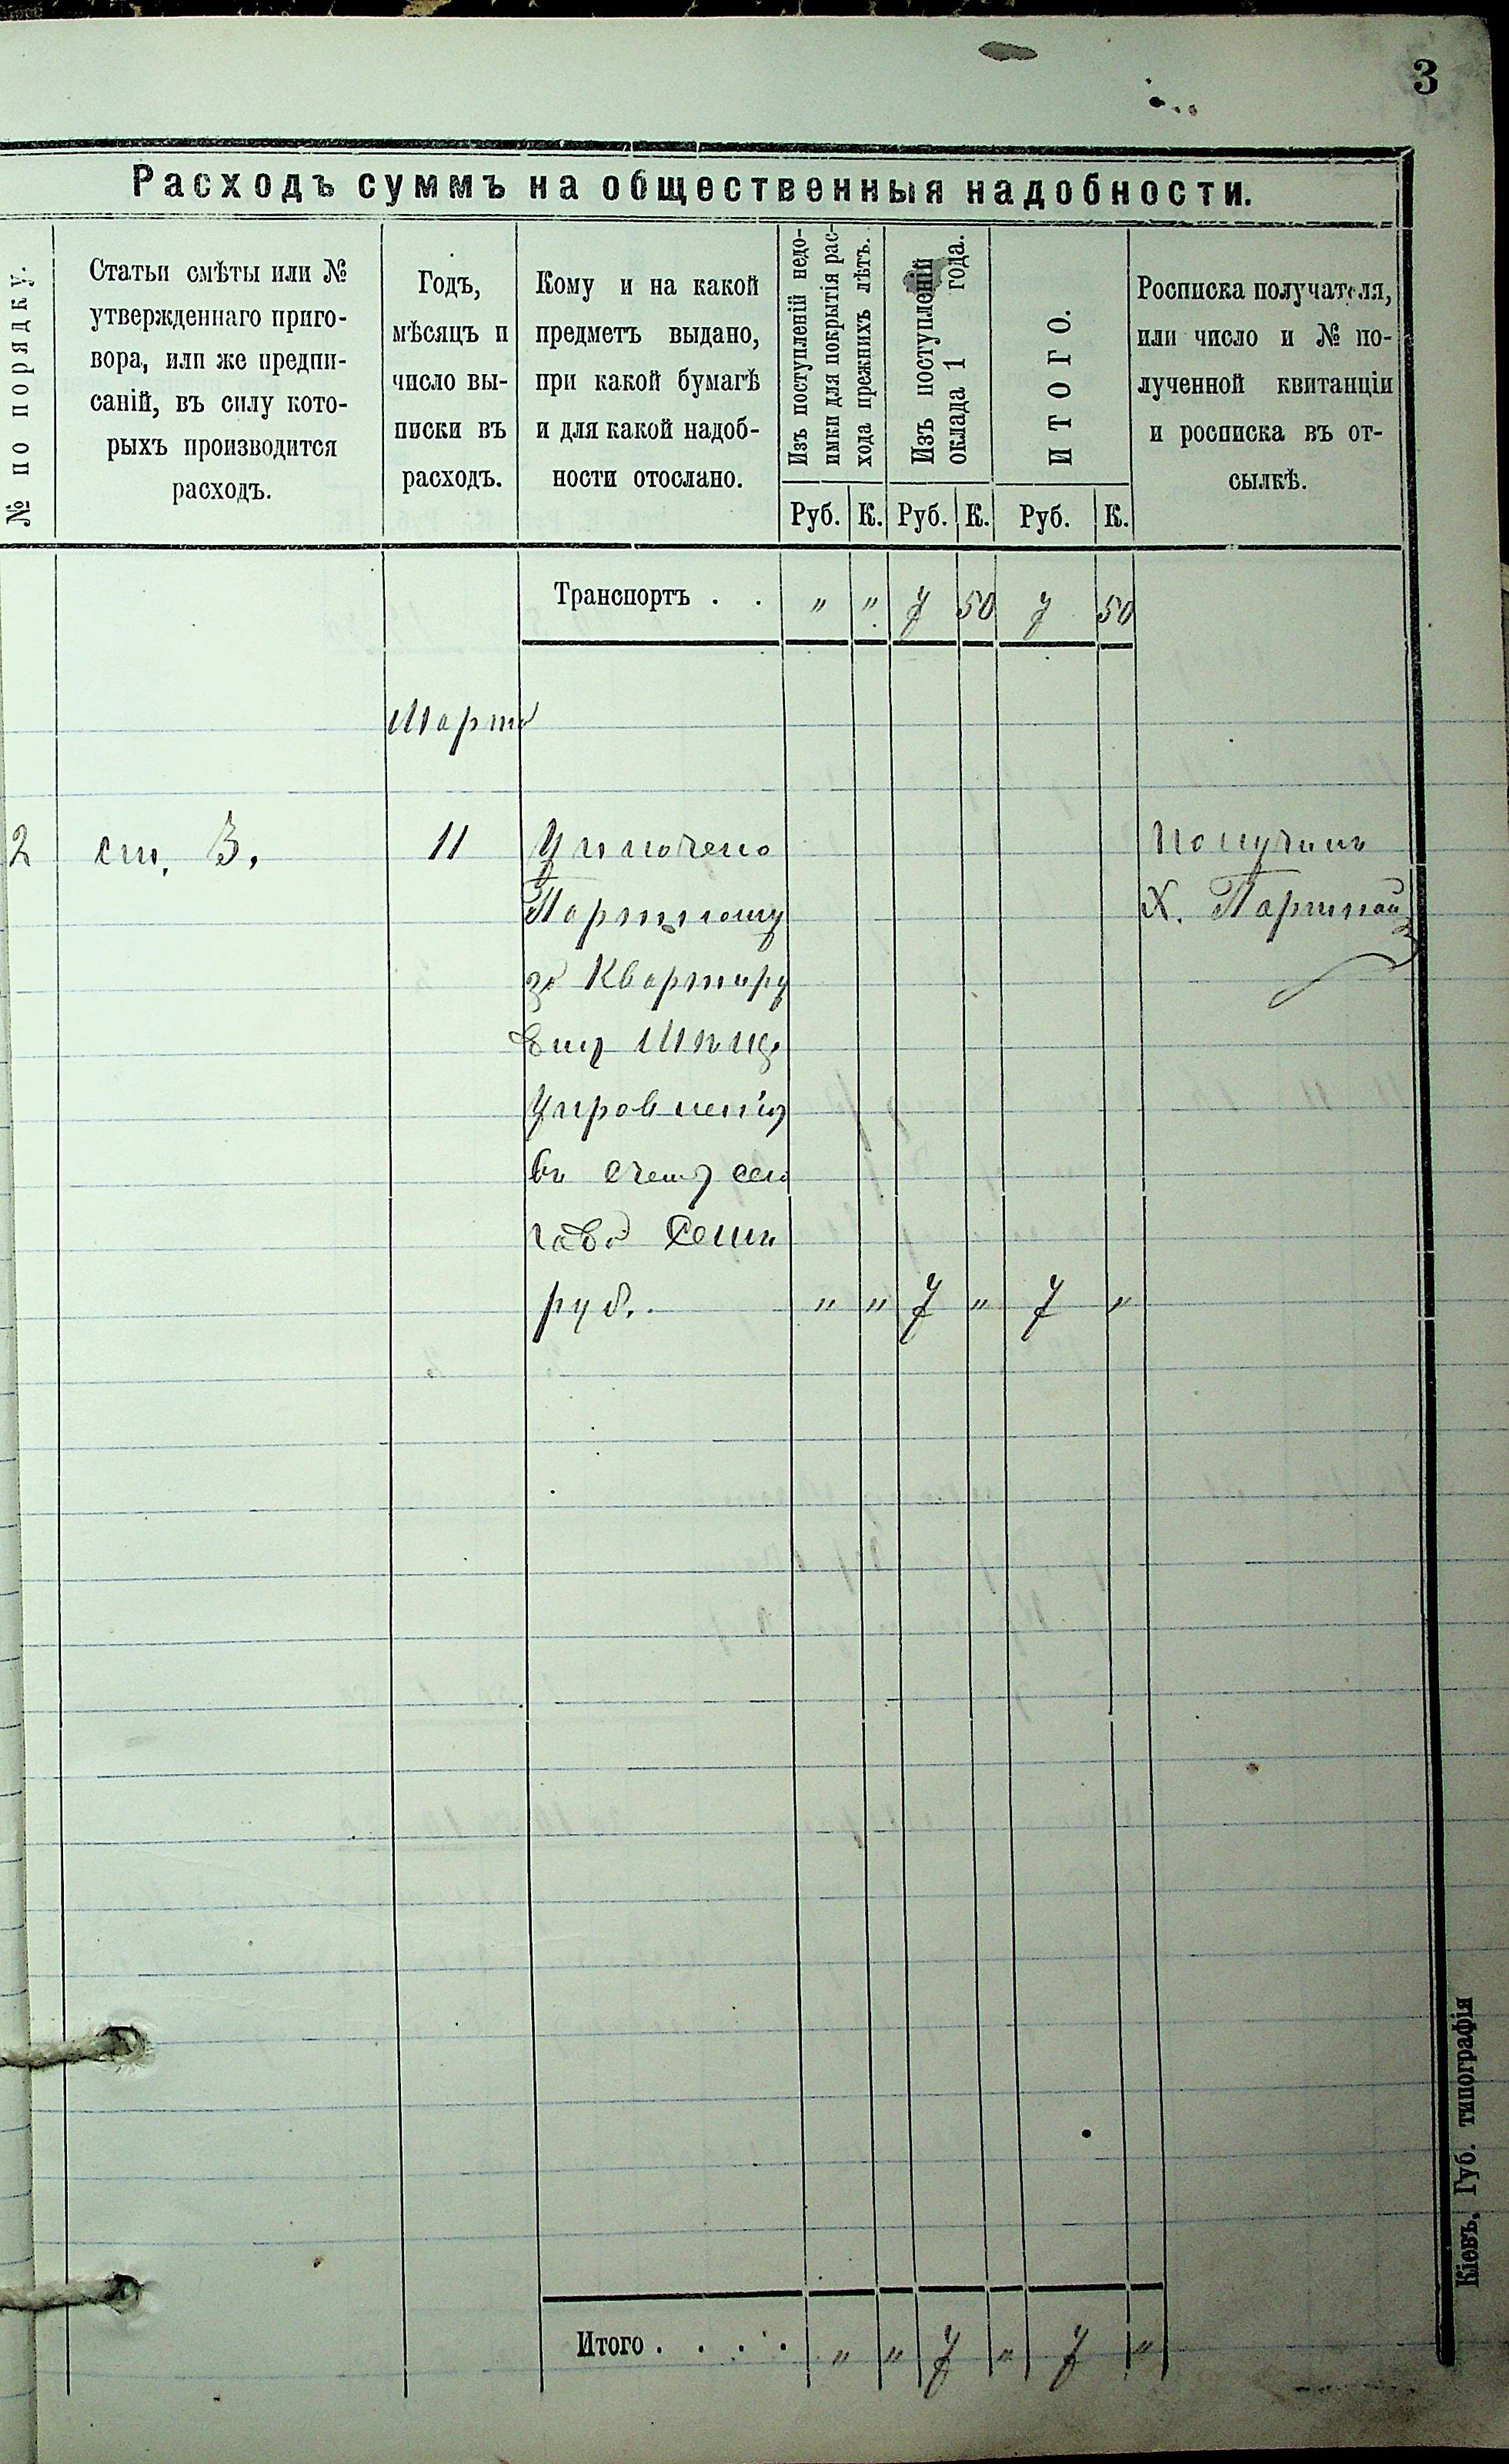 3
Расходъ суммъ на общественныя надобности.
№ по порядку.
Статьи смѣты или №
утвержденнаго приго-
вора, или же предпи-
саній, въ силу кото-
рыхъ производится
расходъ.
Годъ,
мѣсяцъ и
число вы-
писки въ
расходъ.
Кому и на какой
предметъ выдано,
при какой бумагѣ
и для какой надоб-
ности отослано.
Изъ поступленій недо-
имки для покрытія рас-
хода прежнихъ лѣтъ.
Изъ поступленій
оклада 1 года.
ИТОГО.
Росписка получателя,
или число и № по-
лученной квитанціи
и росписка въ от-
сылкѣ.
Руб. К. Руб. К. Руб. К.
Транспортъ . . " " 7 50 7 50
Марта
2 ст. 3. 11 Уплочено Получилъ
Х.
за Квартиру
Мѣщ.
Управленія
въ счетъ
Семь
руб. " " 7 " 7 "
Итого . . . . " " 7 " 7 "
Кіевъ, Губ. типографія